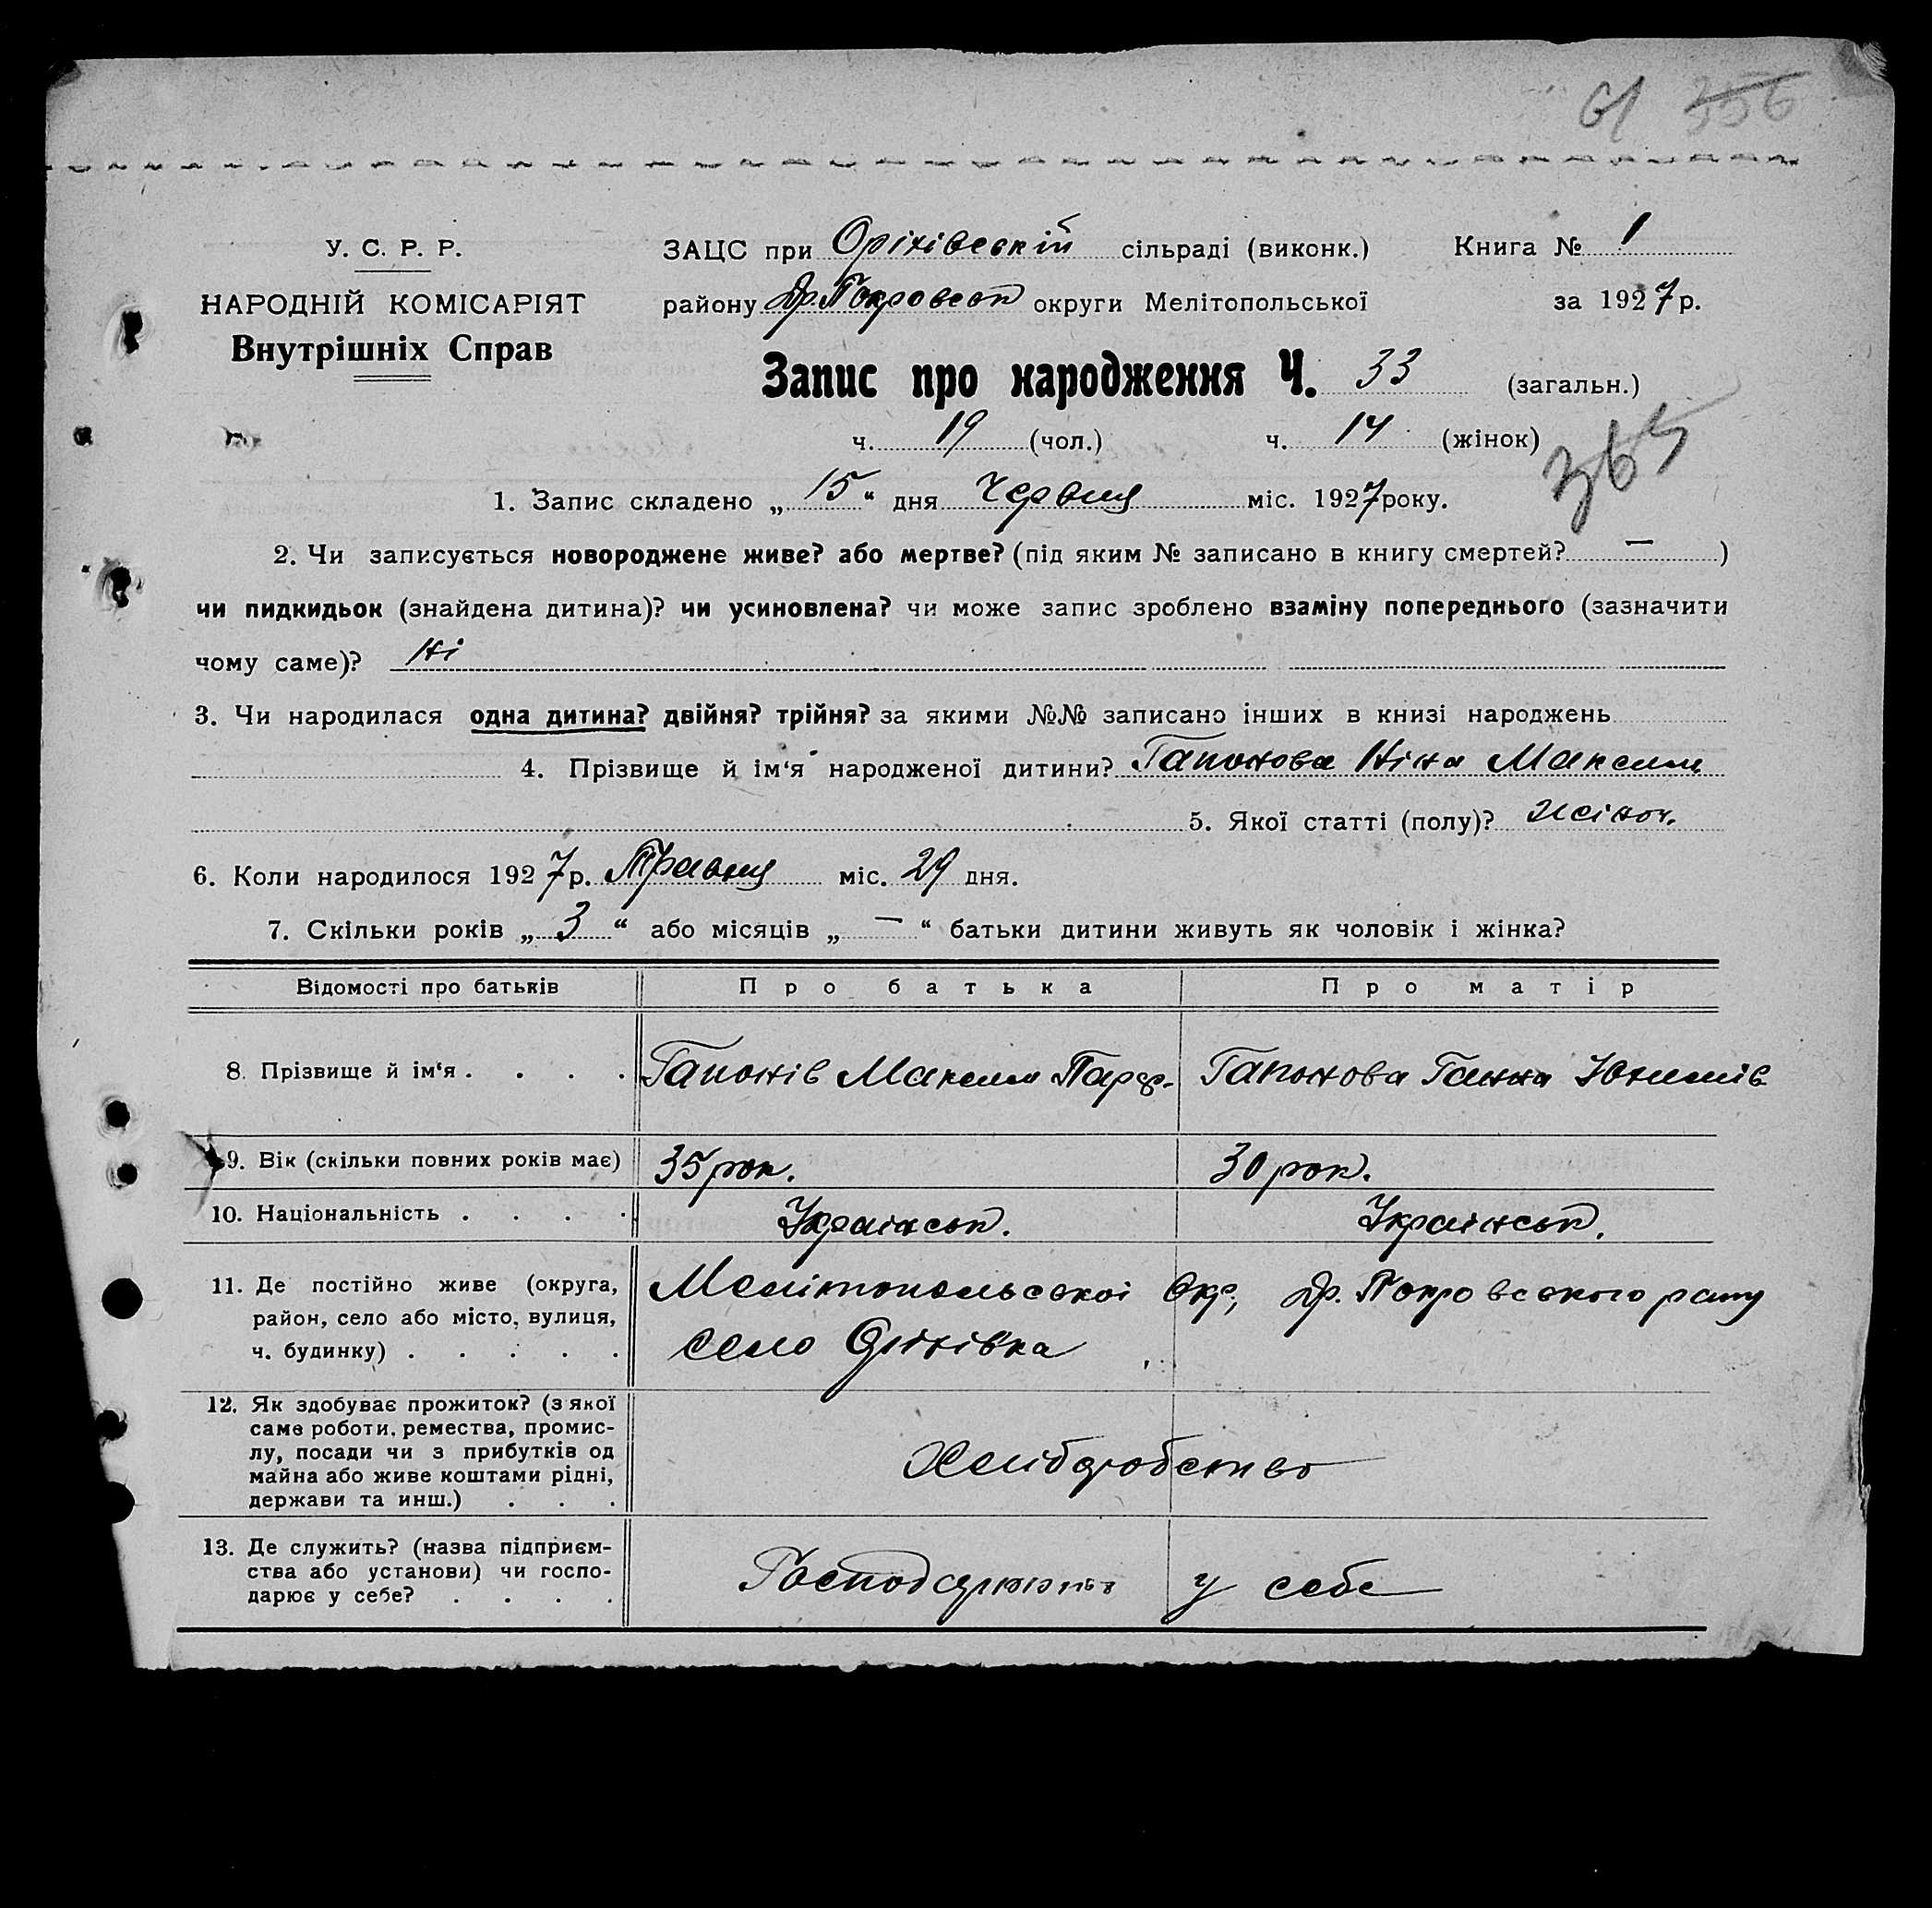 61 356
У. С. Р. Р.
НАРОДНІЙ КОМІСАРІЯТ
Внутрішніх Справ
ЗАЦС при Оріхівській сільраді (виконк.) Книга № 1
району Др. Покровськ округи Мелітопольської за 1927 р.
Запис про народження Ч. 33 (загальн.)
ч. 19 (чол.) ч. 14 (жінок)
365
1. Запис складено „15“ дня Червня міс. 1927 року.
2. Чи записується новороджене живе? або мертве? (під яким № записано в книгу смертей? — )
чи пидкидьок (знайдена дитина)? чи усиновлена? чи може запис зроблено взаміну попереднього (зазначити
чому саме)? Ні
3. Чи народилася одна дитина? двійня? трійня? за якими №№ записано інших в книзі народжень
4. Прізвище й ім‘я народженої дитини? Гапонова Ніна Максим
5. Якої статті (полу)? жіноч.
6. Коли народилося 1927 р. Травня міс. 29 дня.
7. Скільки років „3“ або місяців „—“ батьки дитини живуть як чоловік і жінка?
Відомості про батьків Про батька Про матір
8. Прізвище й ім‘я . . . . Гапонів Максим Парф. Гапонова Ганна
9. Вік (скільки повних років має) 35 рок. 30 рок.
10. Національність . . . . Українськ. Українськ.
11. Де постійно живе (округа,
район, село або місто, вулиця,
ч. будинку) . . . . .
Мелітопольської Окр, Др. Покровського рату
село Оріхівка
12. Як здобуває прожиток? (з якої
саме роботи, ремества, промис-
лу, посади чи з прибутків од
майна або живе коштами рідні,
держави та инш.) . . .
Хліборобство
13. Де служить? (назва підприєм-
ства або установи) чи госпо-
дарює у себе? . . . .
Господарюють у себе